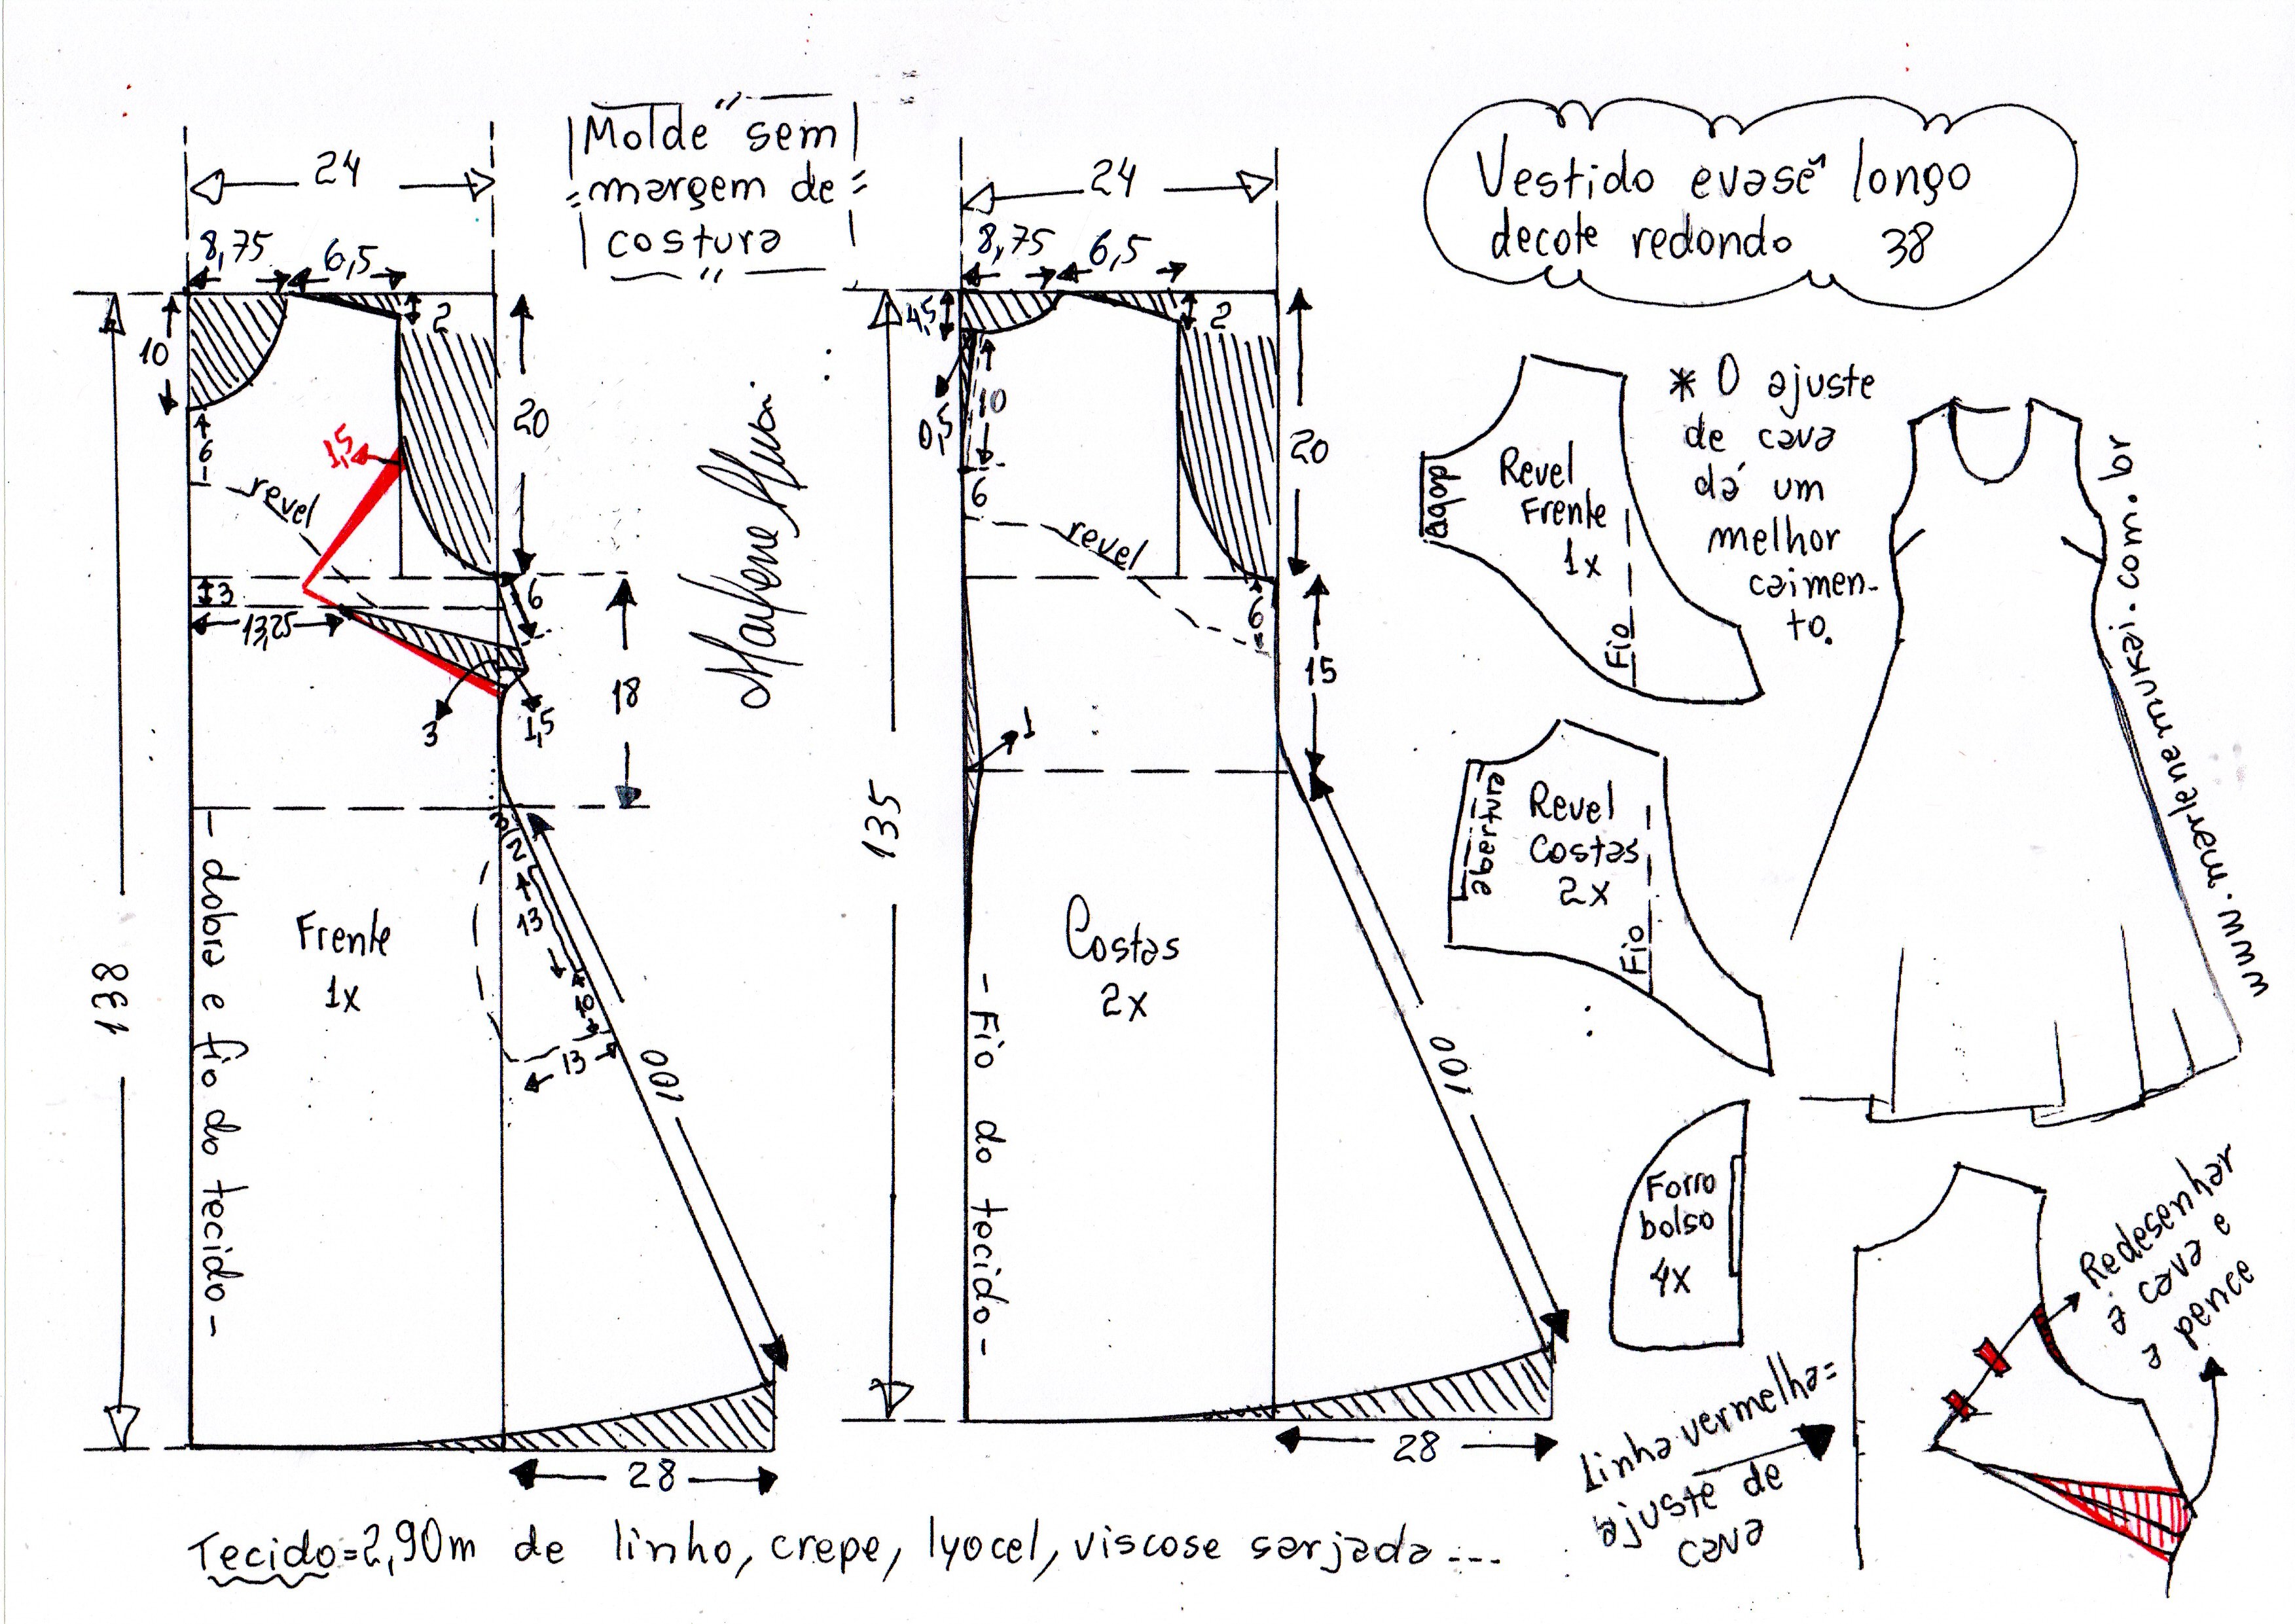 Molde sem
margem de
costura
24
8,75 6,5
10
2
20
6
1,5
revel
3
13,25
6
18
3
1,5
138
3
2
13
10
13
Frente
1x
- dobra e fio do tecido -
100
28
24
8,75 6,5
4,5
2
0,5
10
20
6
revel
6
15
1
135
Costas
2x
- Fio do tecido -
100
28
Vestido evasê longo
decote redondo 38
Revel
Frente
1x
dobra
Fio
* O ajuste
de cava
dá um
melhor
caimen-
to.
Revel
Costas
2x
abertura
Fio
www.marlenemukai.com.br
Forro
bolso
4x
Redesenhar
a cava e
a pence
Linha vermelha=
ajuste de
cava
Tecido=2,90m de linho, crepe, lyocel, viscose sarjada...